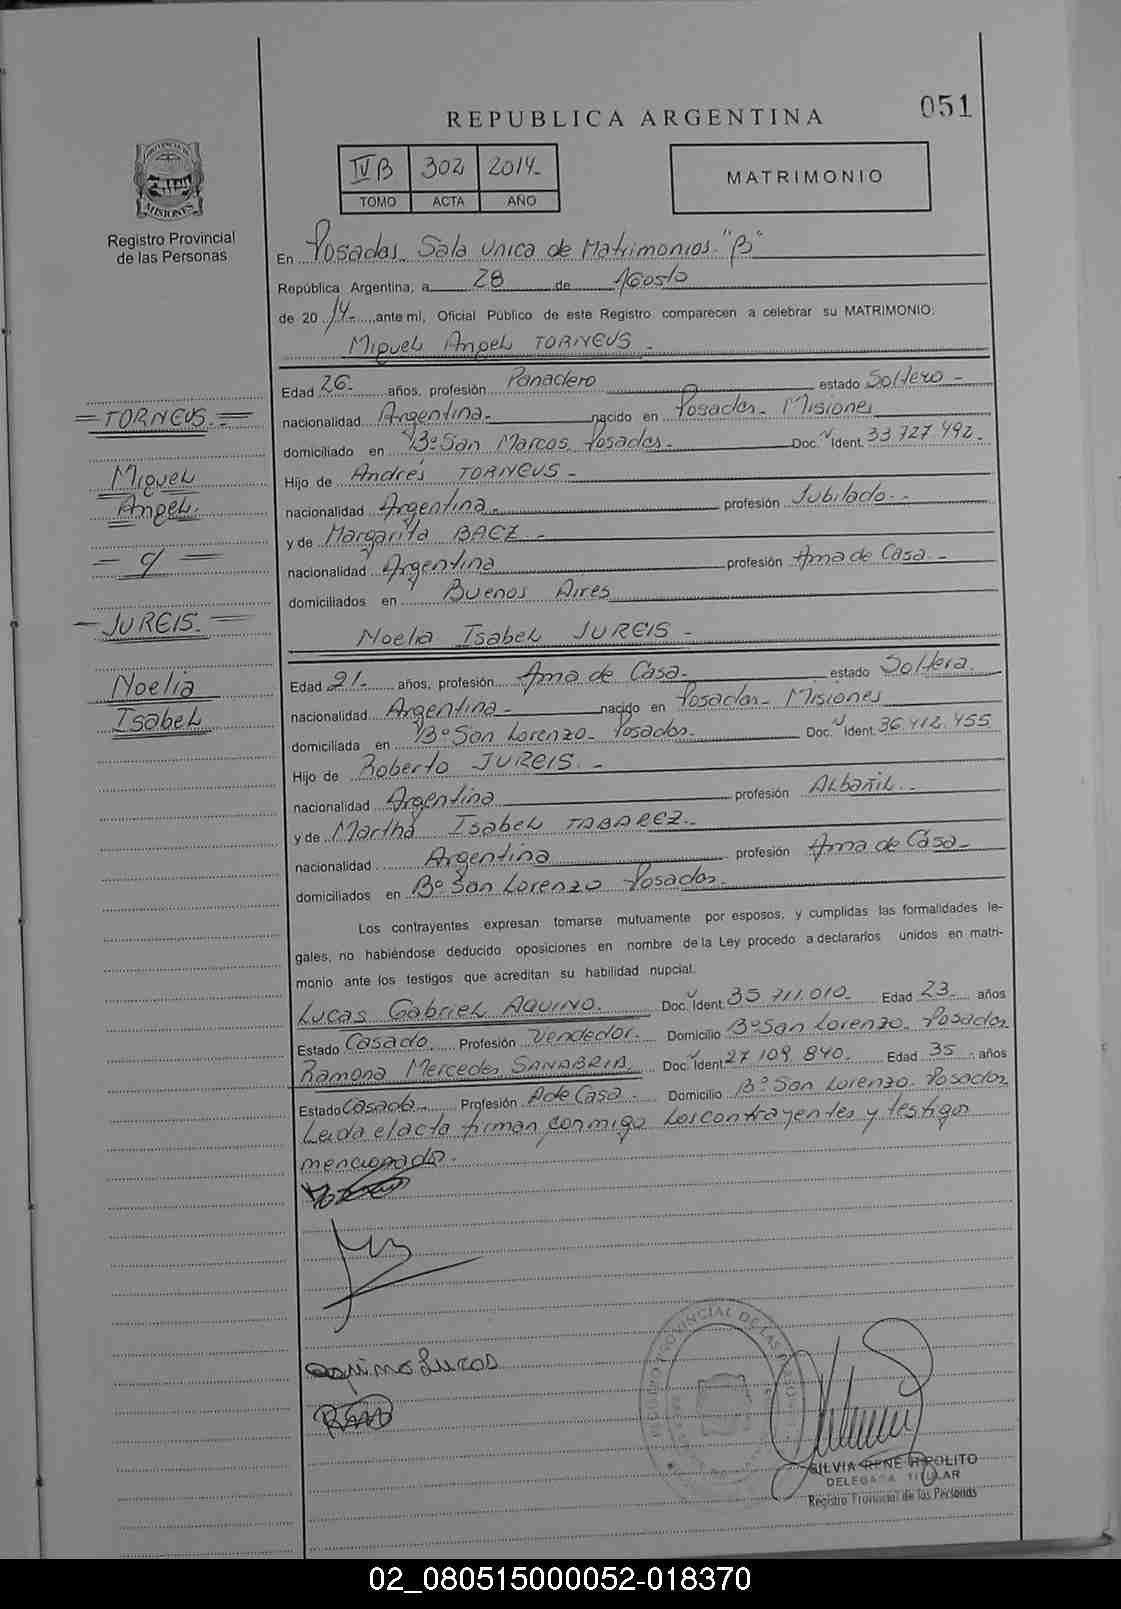 051
REPUBLICA ARGENTINA
IV B 302 2014-
TOMO ACTA AÑO
MATRIMONIO
PROVINCIA DE
MISIONES
Registro Provincial
de las Personas
En Posadas. Sala Unica de Matrimonios "B"
República Argentina, a 28 de Agosto
de 20 14- ante mí, Oficial Público de este Registro comparecen a celebrar su MATRIMONIO:
Miguel Angel TORNEUS -
Edad 26- años, profesión Panadero estado Soltero -
nacionalidad Argentina- nacido en Posadas- Misiones
domiciliado en Bº San Marcos. Posadas- Doc. Ident. 33 727 492-
Hijo de Andrés TORNEUS -
nacionalidad Argentina - profesión Jubilado -
y de Margarita BAEZ -
nacionalidad Argentina profesión Ama de Casa -
domiciliados en Buenos Aires
Noelia Isabel JUREIS -
Edad 21- años, profesión Ama de Casa- estado Soltera.
nacionalidad Argentina - nacido en Posadas- Misiones
domiciliada en Bº San Lorenzo- Posadas- Doc. Ident. 36.412.455
Hijo de Roberto JUREIS. -
nacionalidad Argentina profesión Albañil -
y de Martha Isabel TABAREZ -
nacionalidad Argentina profesión Ama de Casa-
domiciliados en Bº San Lorenzo Posadas.
Los contrayentes expresan tomarse mutuamente por esposos, y cumplidas las formalidades le-
gales, no habiéndose deducido oposiciones en nombre de la Ley procedo a declararlos unidos en matri-
monio ante los testigos que acreditan su habilidad nupcial.
Lucas Gabriel AQUINO. Doc. Ident. 35 711.010- Edad 23- años
Estado Casado. Profesión Vendedor. Domicilio Bº San Lorenzo. Posadas
Ramona Mercedes SANABRIA. Doc. Ident. 27 109 840- Edad 35 - años
Estado Casada- Profesión A de Casa - Domicilio Bº San Lorenzo. Posadas
Leida el acta firman conmigo Los contrayentes y testigos
mencionados.
= TORNEUS. =
Miguel
Angel.
- y =
- JUREIS. -
Noelia
Isabel
Aquino Lucas
REGISTRO PROVINCIAL DE LAS PERSONAS
SILVIA RENE HIPOLITO
DELEGADA TITULAR
Registro Provincial de las Personas
02_080515000052-018370